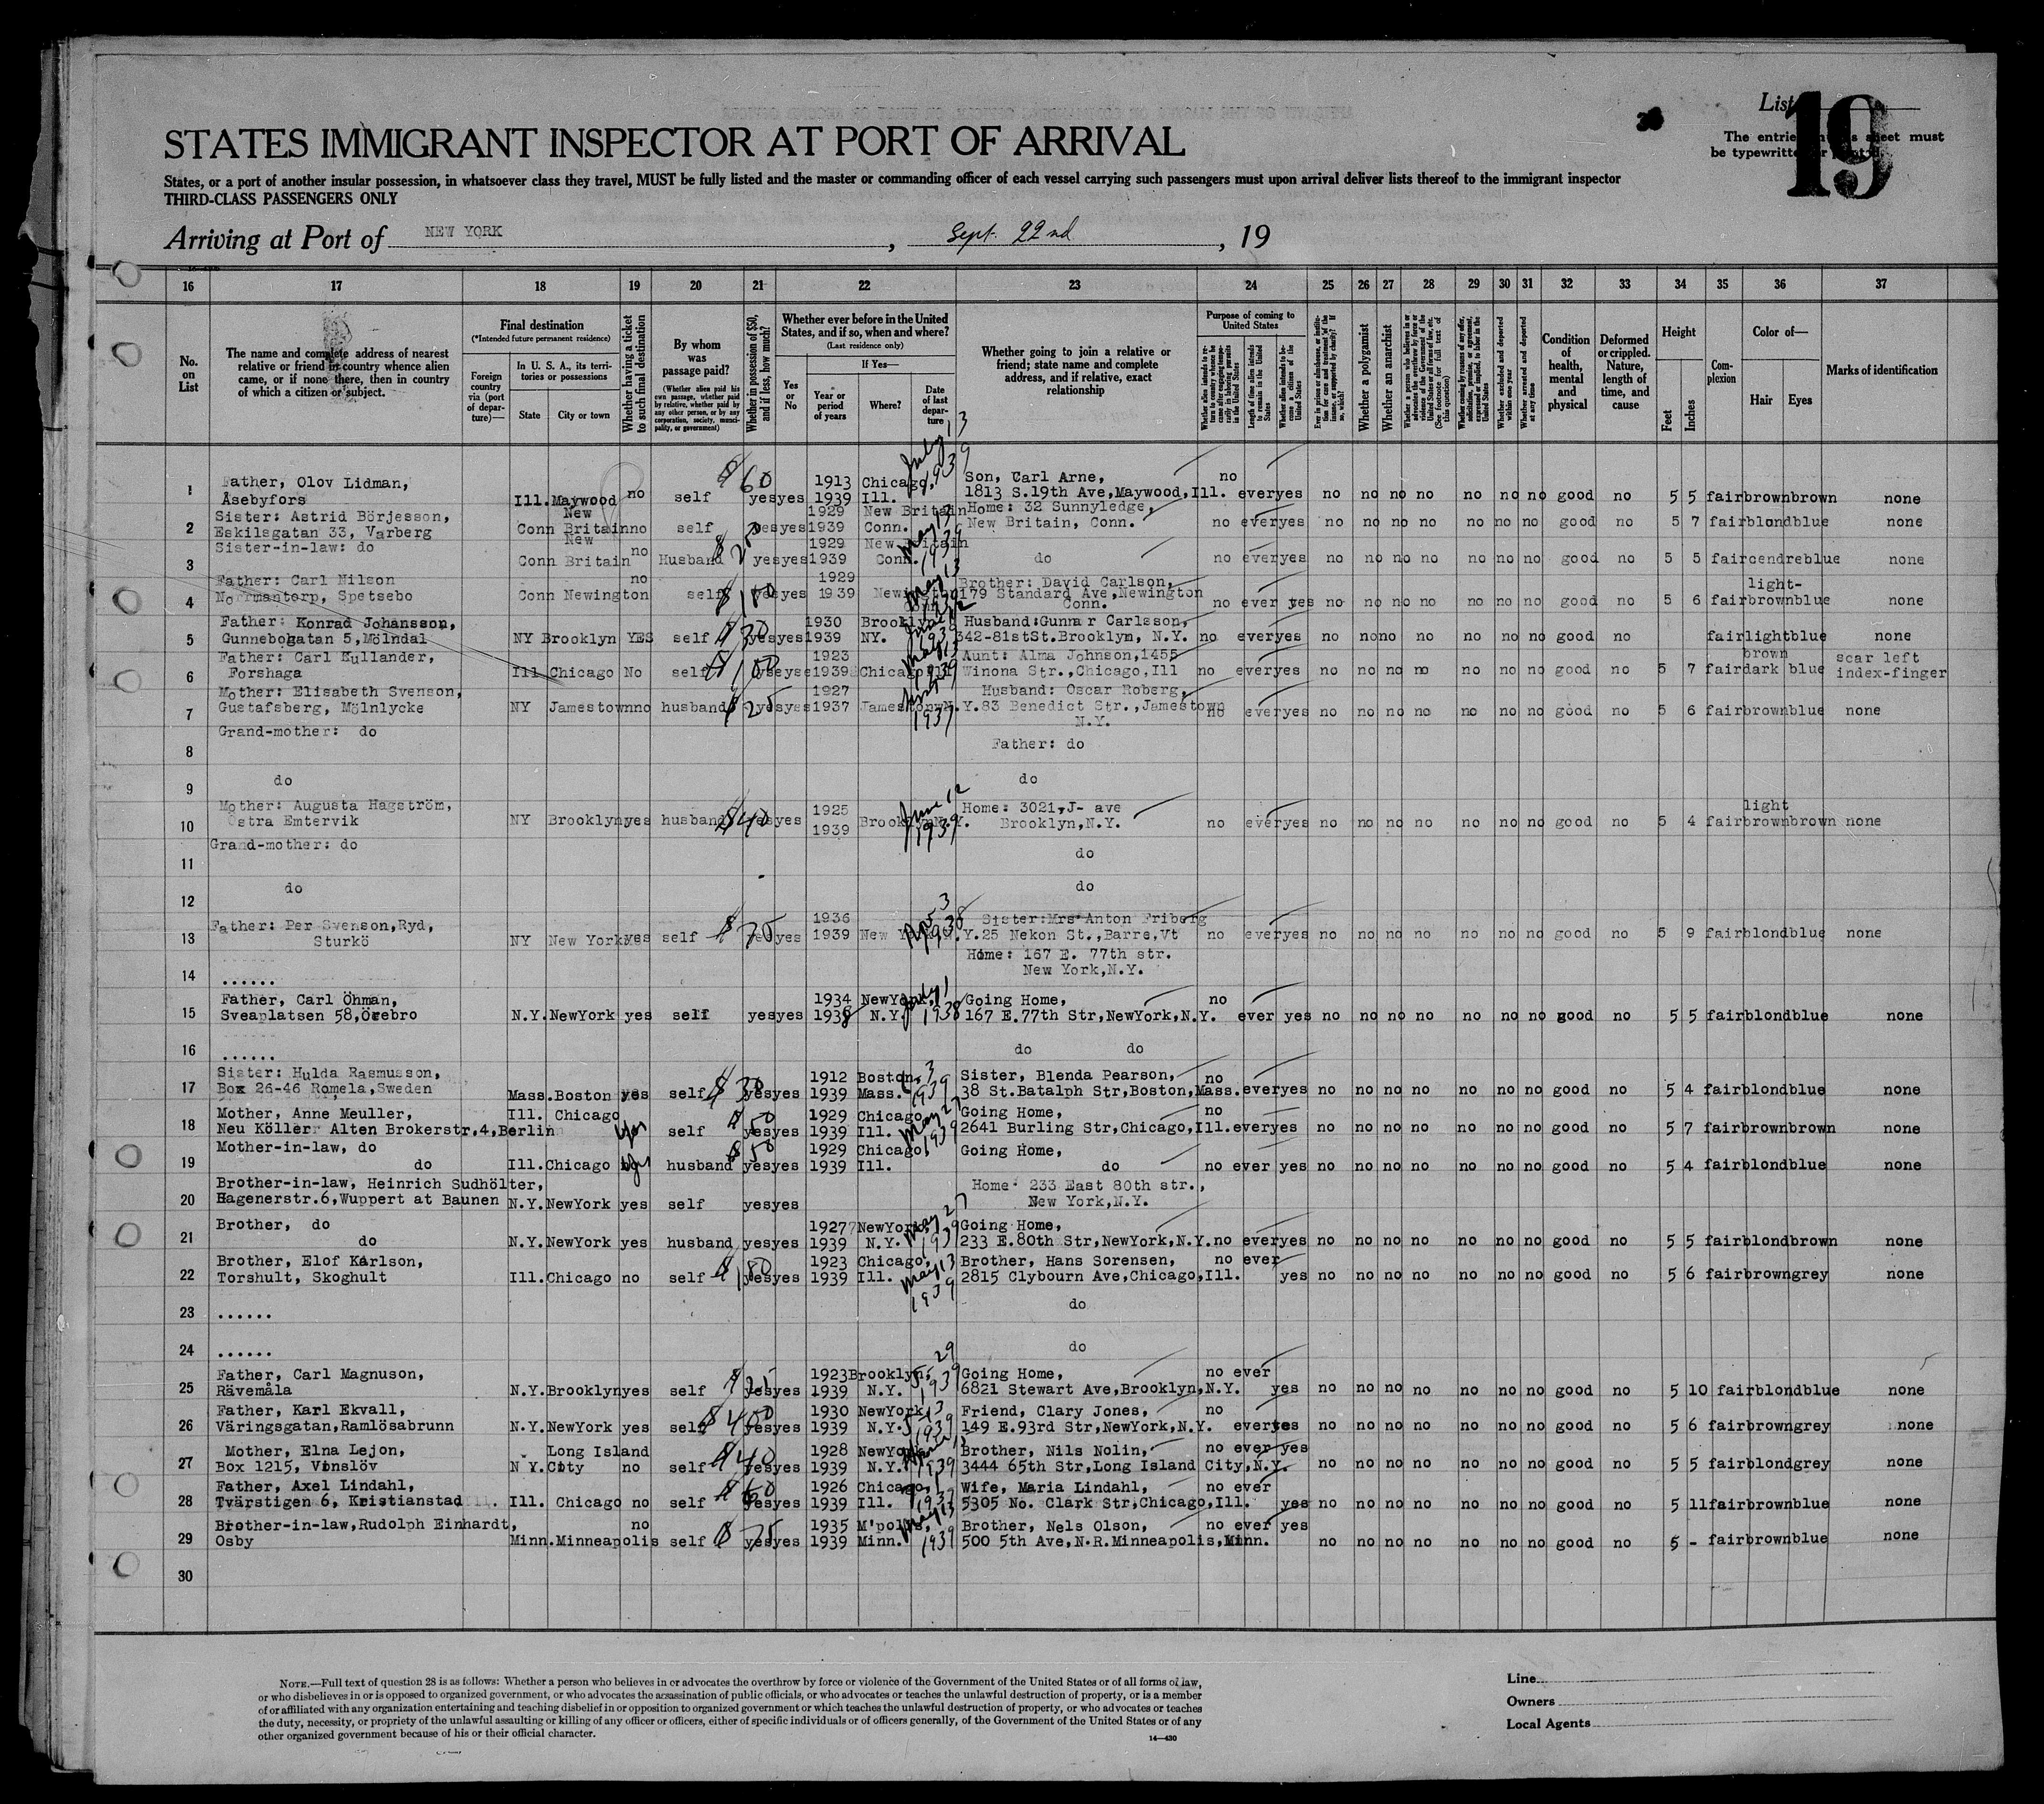 List 19
The entries on this sheet must
be typewritten or printed.
STATES IMMIGRANT INSPECTOR AT PORT OF ARRIVAL
States, or a port of another insular possession, in whatsoever class they travel, MUST be fully listed and the master or commanding officer of each vessel carrying such passengers must upon arrival deliver lists thereof to the immigrant inspector
THIRD-CLASS PASSENGERS ONLY
Arriving at Port of NEW YORK, Sept. 22nd, 19
16 17 18 19 20 21 22 23 24 25 26 27 28 29 30 31 32 33 34 35 36 37
No. on List
The name and complete address of nearest relative or friend in country whence alien came, or if none there, then in country of which a citizen or subject.
Final destination
(*Intended future permanent residence)
Foreign country via (port of departure)—
In U. S. A., its territories or possessions
State
City or town
Whether having a ticket to such final destination
By whom was passage paid?
(Whether alien paid his own passage, whether paid by relative, whether paid by any other person, or by any corporation, society, municipality, or government)
Whether in possession of $50, and if less, how much?
Whether ever before in the United States, and if so, when and where?
(Last residence only)
Yes or No
If Yes—
Year or period of years
Where?
Date of last departure
Whether going to join a relative or friend; state name and complete address, and if relative, exact relationship
Purpose of coming to United States
Whether alien intends to return to country whence he came after engaging temporarily in laboring pursuits in the United States
Length of time alien intends to remain in the United States
Whether alien intends to become a citizen of the United States
Whether a polygamist
Whether an anarchist
(See footnote for full text of this question)
Whether excluded and deported within one year
Whether arrested and deported at any time
Condition of health, mental and physical
Deformed or crippled. Nature, length of time, and cause
Height
Feet
Inches
Complexion
Color of—
Hair
Eyes
Marks of identification
1 Father, Olov Lidman, $60 1913 Chicago, July 13 Son, Carl Arne, no
Åsebyfors Ill. Maywood no self yes yes 1939 Ill. 1939 1813 S.19th Ave, Maywood, Ill. ever yes no no no no no no no good no 5 5 fair brown brown none
2 Sister: Astrid Börjesson, New 1929 New Britain Home: 32 Sunnyledge,
Eskilsgatan 33, Varberg Conn Britain no self yes yes 1939 Conn. May 13 New Britain, Conn. no ever yes no no no no no no no good no 5 7 fair blond blue none
3 Sister-in-law: do New no 1929 New Britain 1939
Conn Britain Husband yes yes 1939 Conn. do no ever yes no no no no no no no good no 5 5 fair cendre blue none
4 Father: Carl Nilson no 1929 May 13 Brother: David Carlson, light-
Norrmantorp, Spetsebo Conn Newington self $100 yes yes 1939 Newington Conn. 1939 179 Standard Ave, Newington Conn. no ever yes no no no no no no no good no 5 6 fair brown blue none
5 Father: Konrad Johansson, 1930 Brooklyn Husband: Gunnar Carlsson,
Gunnebogatan 5, Mölndal NY Brooklyn YES self $30 yes yes 1939 NY. 1939 342-81stSt. Brooklyn, N.Y. no ever yes no no no no no no no good no fair light brown blue none
6 Father: Carl Kullander, 1923 May 13 Aunt: Alma Johnson, 1455 scar left
Forshaga Ill Chicago No self $100 yes yes 1939 Chicago Ill 1939 Winona Str., Chicago, Ill no ever yes no no no no no no no good no 5 7 fair dark blue index-finger
7 Mother: Elisabeth Svenson, 1927 Husband: Oscar Roberg,
Gustafsberg, Mölnlycke NY Jamestown no husband $25 yes yes 1937 Jamestown N.Y. 1937 83 Benedict Str., Jamestown N.Y. no ever yes no no no no no no no good no 5 6 fair brown blue none
8 Grand-mother: do Father: do
9 do do
10 Mother: Augusta Hagström, 1925 June 12 Home: 3021, J- ave light
Östra Emtervik NY Brooklyn yes husband $40 yes yes 1939 Brooklyn N.Y. 1939 Brooklyn, N.Y. no ever yes no no no no no no no good no 5 4 fair brown brown none
11 Grand-mother: do do
12 do do
13 Father: Per Svenson, Ryd, 1936 Sister: Mrs Anton Friberg
Sturkö NY New York yes self $75 yes yes 1939 New York N.Y. 1938 25 Nekon St., Barre, Vt no ever yes no no no no no no no good no 5 9 fair blond blue none
14 ...... Home: 167 E. 77th str.
New York, N.Y.
15 Father, Carl Öhman, 1934 NewYork, July 1 Going Home, no
Sveaplatsen 58, Örebro N.Y. NewYork yes self yes yes 1938 N.Y. 1938 167 E.77th Str, NewYork, N.Y. ever yes no no no no no no no good no 5 5 fair blond blue none
16 ...... do do
17 Sister: Hulda Rasmusson, 1912 Boston, Sister, Blenda Pearson, no
Box 26-46 Romela, Sweden Mass. Boston yes self $30 yes yes 1939 Mass. 1939 38 St. Batalph Str, Boston, Mass. ever yes no no no no no no no good no 5 4 fair blond blue none
18 Mother, Anne Meuller, Ill. Chicago $50 1929 Chicago, May 27 Going Home, no
Neu Köller Alten Brokerstr. 4, Berlin yes self yes yes 1939 Ill. 1939 2641 Burling Str, Chicago, Ill. ever yes no no no no no no no good no 5 7 fair brown brown none
19 Mother-in-law, do $50 1929 Chicago, Going Home,
do Ill. Chicago yes husband yes yes 1939 Ill. do no ever yes no no no no no no no good no 5 4 fair blond blue none
20 Brother-in-law, Heinrich Sudhölter, Home: 233 East 80th str.,
Hagenerstr. 6, Wuppert at Baunen N.Y. NewYork yes self yes yes New York, N.Y.
21 Brother, do 1927 NewYork, May 27 Going Home,
do N.Y. NewYork yes husband yes yes 1939 N.Y. 1939 233 E.80th Str, NewYork, N.Y. no ever yes no no no no no no no good no 5 5 fair blond brown none
22 Brother, Elof Karlson, 1923 Chicago, Brother, Hans Sorensen, no ever
Torshult, Skoghult Ill. Chicago no self $150 yes yes 1939 Ill. May 13 1939 2815 Clybourn Ave, Chicago, Ill. yes no no no no no no no good no 5 6 fair brown grey none
23 ...... do
24 ...... do
25 Father, Carl Magnuson, 1923 Brooklyn, 5-29 Going Home, no ever
Rävemåla N.Y. Brooklyn yes self yes yes 1939 N.Y. 1939 6821 Stewart Ave, Brooklyn, N.Y. yes no no no no no no no good no 5 10 fair blond blue none
26 Father, Karl Ekvall, 1930 NewYork, 5-13 Friend, Clary Jones, no
Väringsgatan, Ramlösabrunn N.Y. NewYork yes self $400 yes yes 1939 N.Y. 1939 149 E.93rd Str, NewYork, N.Y. ever yes no no no no no no no good no 5 6 fair brown grey none
27 Mother, Elna Lejon, Long Island 1928 NewYork, Brother, Nils Nolin, no ever yes
Box 1215, Vinslöv N Y. City no self $40 yes yes 1939 N.Y. 1939 3444 65th Str, Long Island City, N.Y. no no no no no no no good no 5 5 fair blond grey none
28 Father, Axel Lindahl, 1926 Chicago, Wife, Maria Lindahl, no ever
Tvärstigen 6, Kristianstad Ill. Chicago no self $60 yes yes 1939 Ill. 1939 5305 No. Clark Str, Chicago, Ill. yes no no no no no no no good no 5 11 fair brown blue none
29 Brother-in-law, Rudolph Einhardt, no 1935 M'polis, May 13 Brother, Nels Olson, no ever yes
Osby Minn. Minneapolis self $75 yes yes 1939 Minn. 1939 500 5th Ave, N.R. Minneapolis, Minn. no no no no no no no good no 5 - fair brown blue none
30
NOTE.—Full text of question 28 is as follows: Whether a person who believes in or advocates the overthrow by force or violence of the Government of the United States or of all forms of law,
or who disbelieves in or is opposed to organized government, or who advocates the assassination of public officials, or who advocates or teaches the unlawful destruction of property, or is a member
of or affiliated with any organization entertaining and teaching disbelief in or opposition to organized government or which teaches the unlawful destruction of property, or who advocates or teaches
the duty, necessity, or propriety of the unlawful assaulting or killing of any officer or officers, either of specific individuals or of officers generally, of the Government of the United States or of any
other organized government because of his or their official character.
14—430
Line
Owners
Local Agents